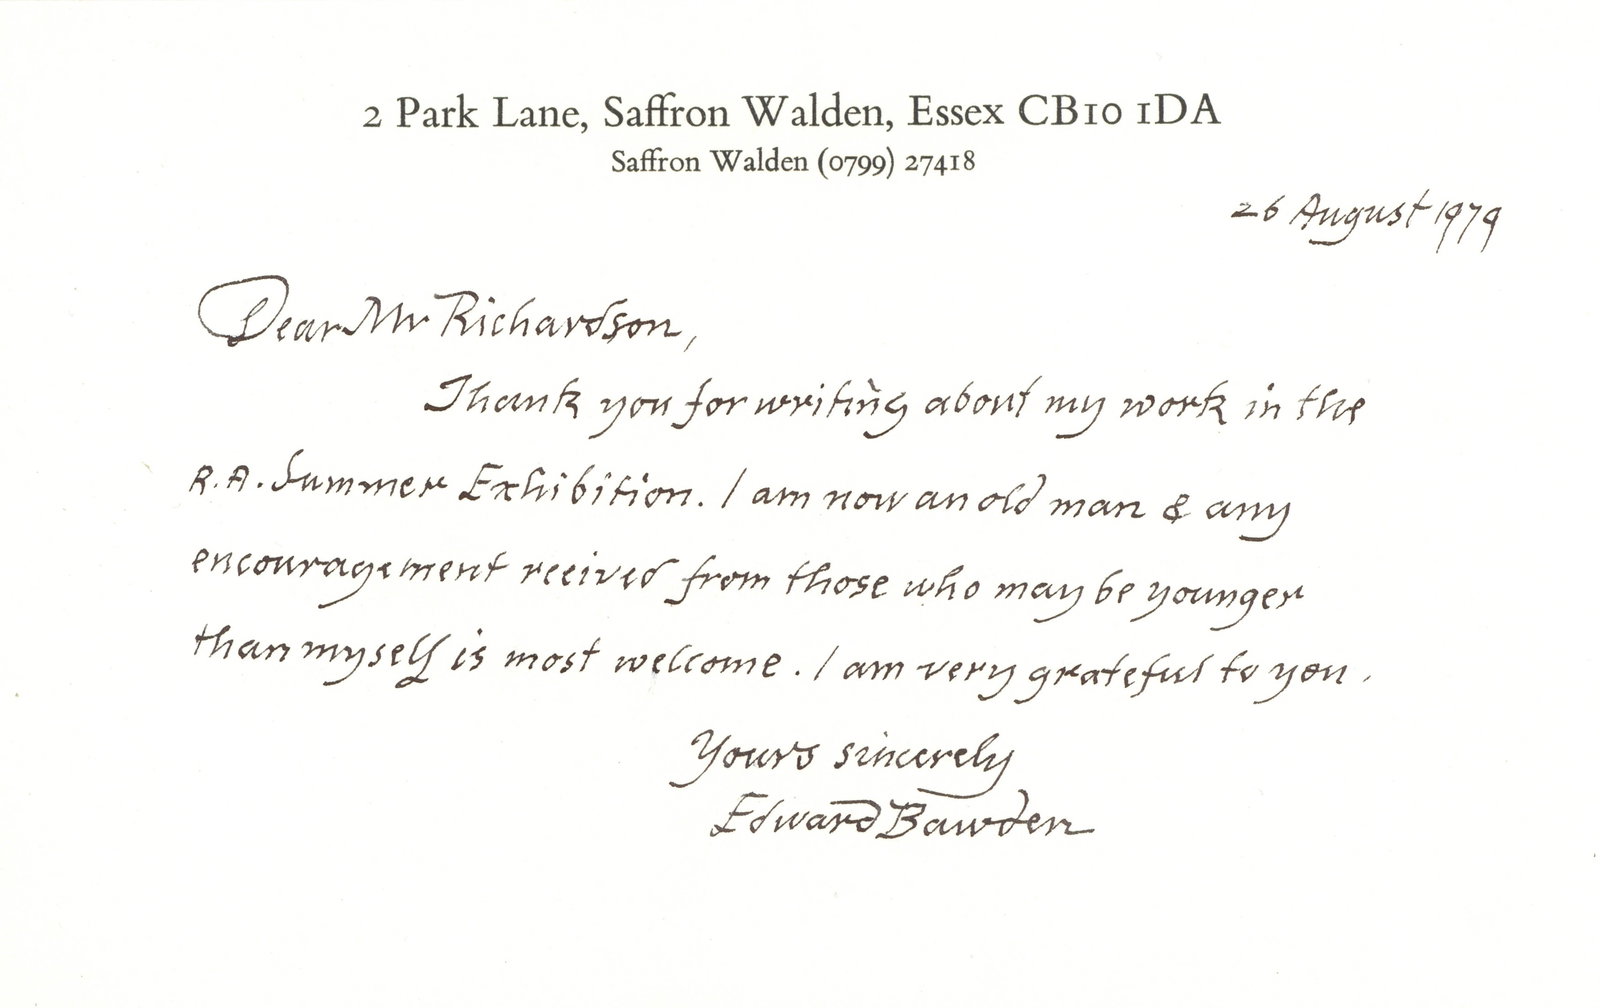 2 Park Lane, Saffron Walden, Essex CB10 1DA
Saffron Walden (0799) 27418
26 August 1979
Dear Mr Richardson,
Thank you for writing about my work in the
R.A. Summer Exhibition. I am now an old man & any
encouragement reeived from those who may be younger
than myself is most welcome. I am very grateful to you.
Yours sincerely
Edward Bawden